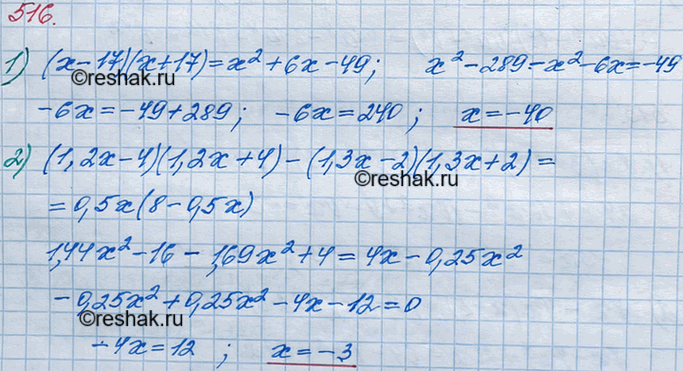 516.
1) (x-17)(x+17)=x²+6x-49; x²-289-x²-6x=-49
©reshak.ru
-6x=-49+289; -6x=240; x=-40
2) (1,2x-4)(1,2x+4)-(1,3x-2)(1,3x+2)=
©reshak.ru
=0,5x(8-0,5x)
1,44x²-16-1,69x²+4=4x-0,25x²
-0,25x²+0,25x²-4x-12=0
©reshak.ru
-4x=12; x=-3